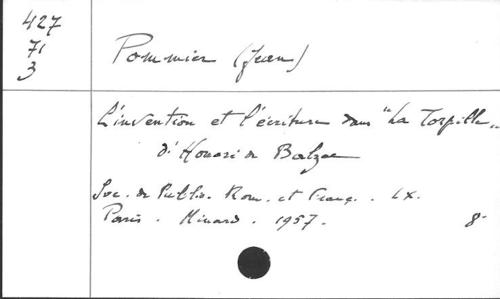 427
71
3
Pommier (Jean)
L'invention et l'écriture dans "La Torpille"
d'Honoré de Balzac
Soc. de Public. Rom. et Franç. . LX.
Paris . Minard . 1957. 8°